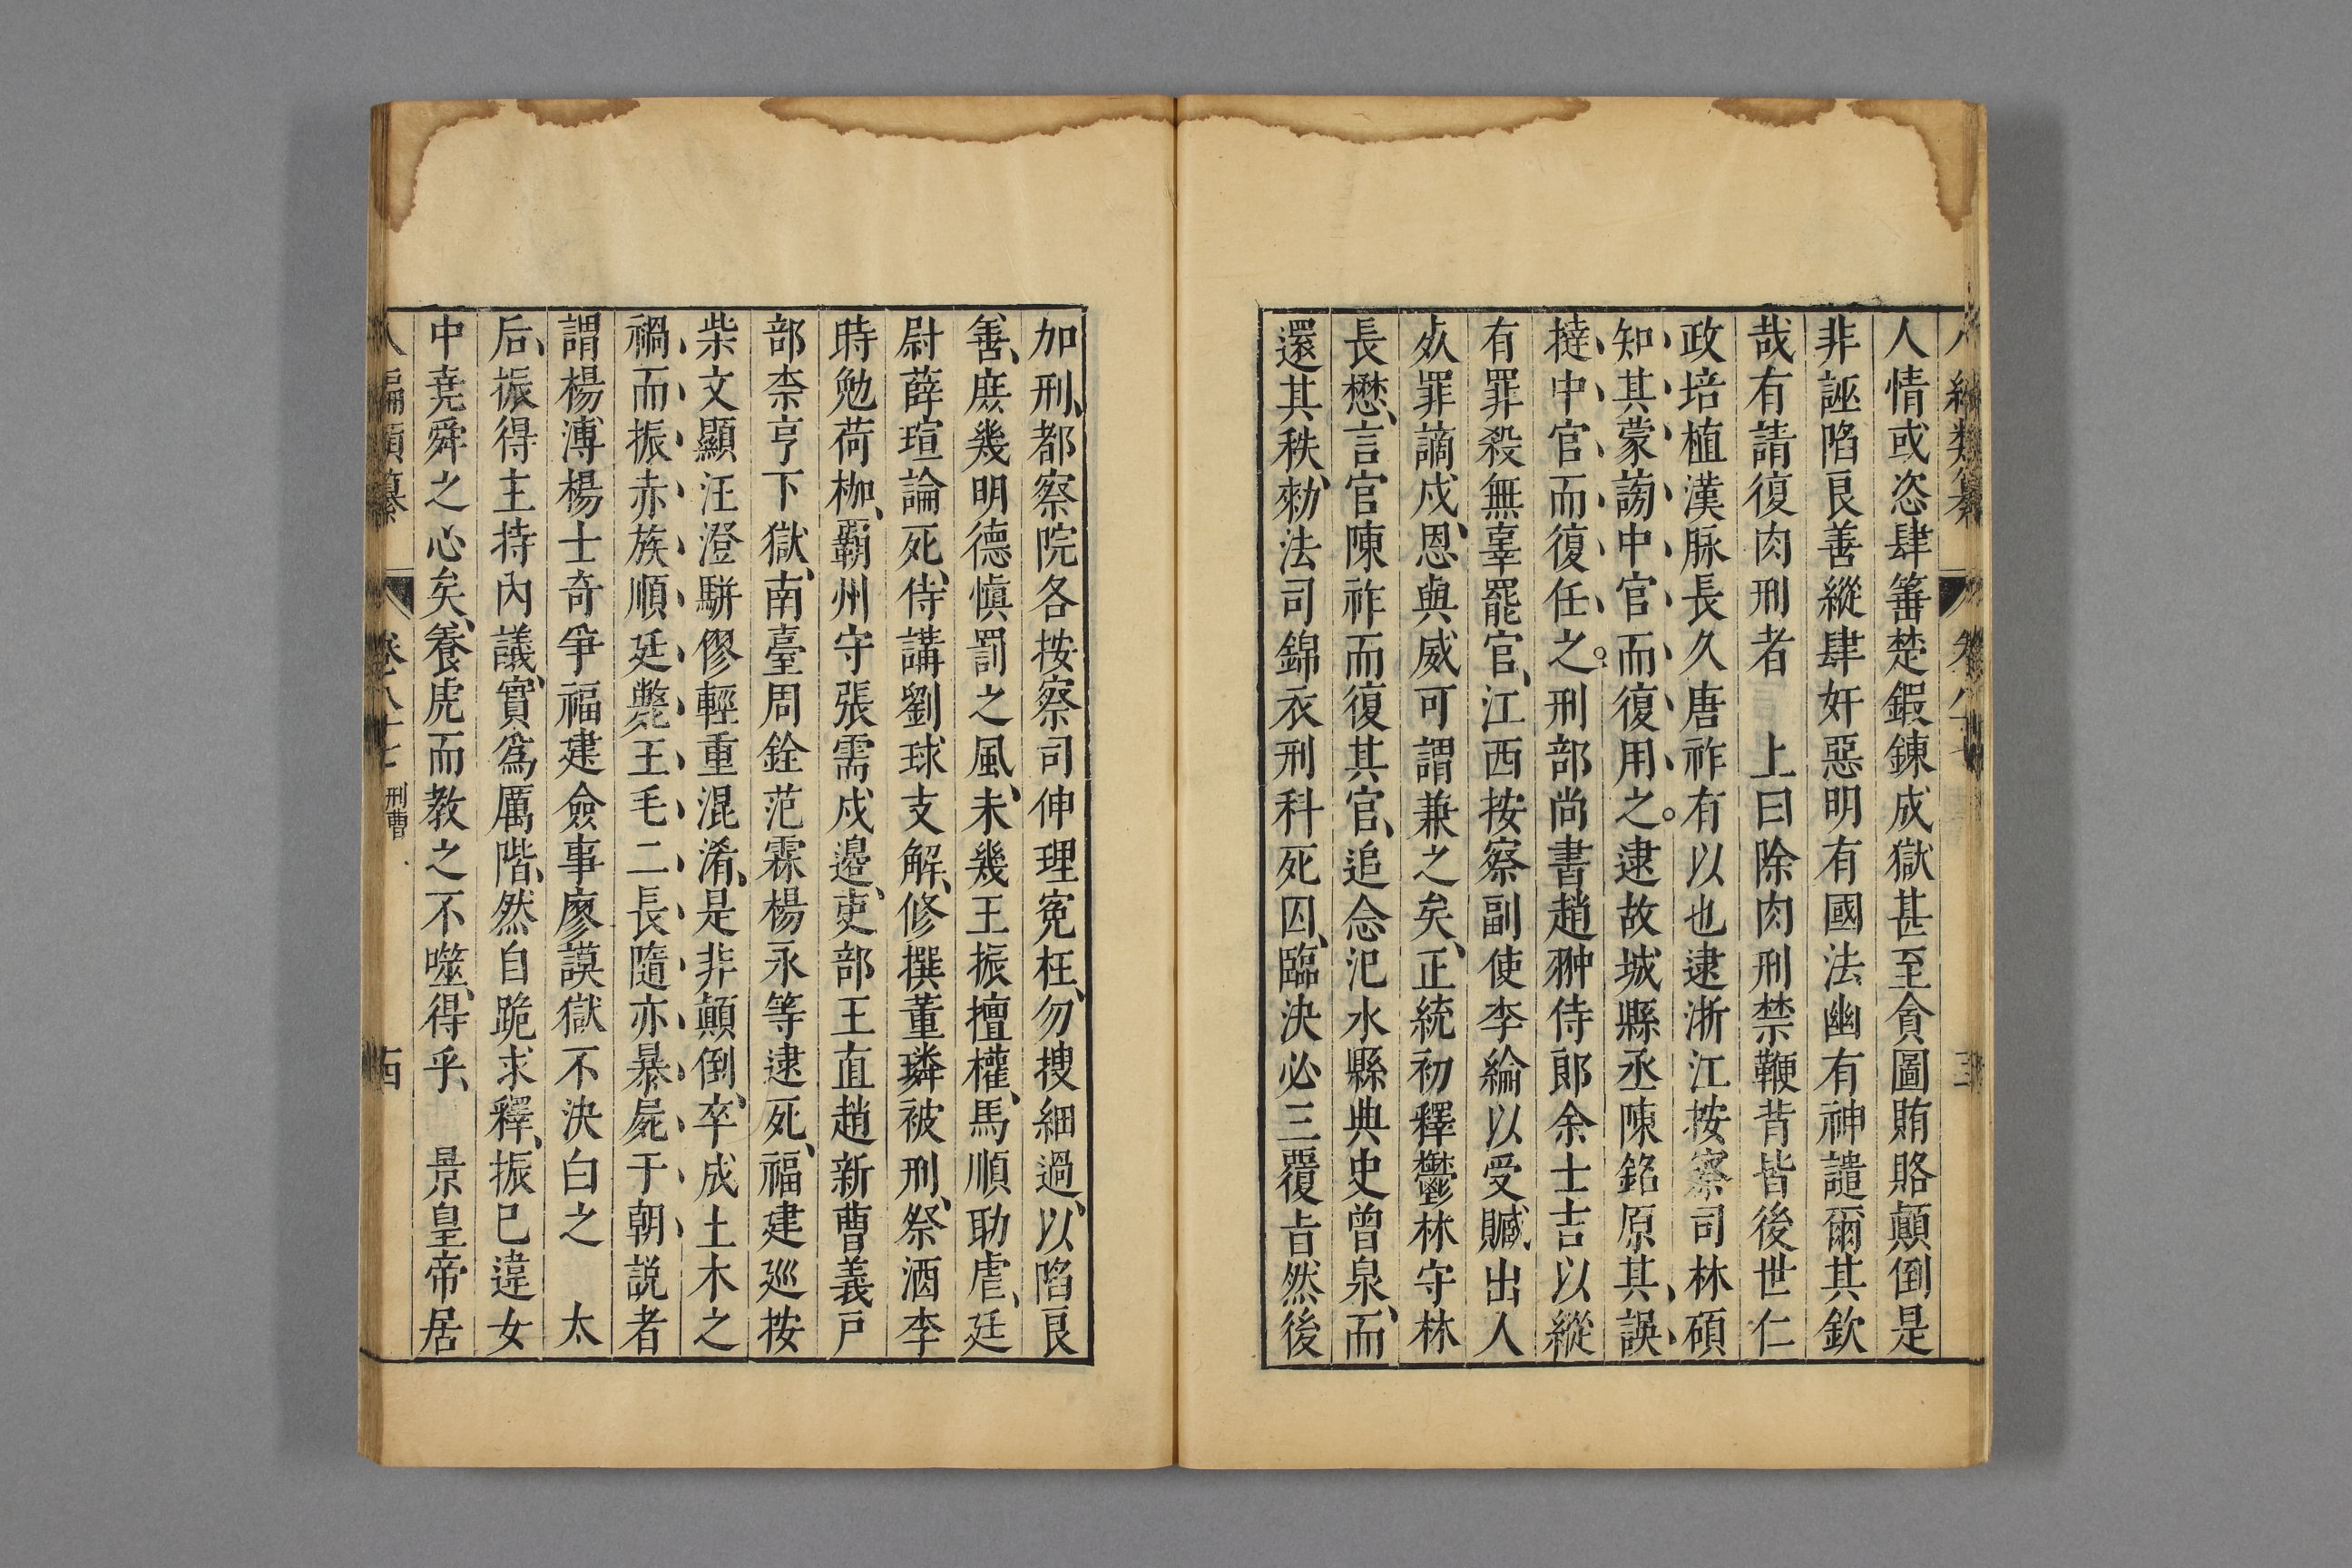 人情或恣肆箠楚鍜錬成獄甚至貪圖賄賂顛倒是
非誣陷良善縱肆奸惡明有國法幽有神譴爾其欽
哉有請復肉刑者　上曰除肉刑禁鞭背皆後世仁
政培植漢脉長久唐祚有以也逮浙江按察司林碩
知其蒙謗中官而復用之。逮故城縣丞陳銘原其誤
撻中官而復任之。刑部尚書趙翀侍郎余士吉以縱
有罪殺無辜罷官、江西按察副使李綸以受贓出人
死罪謫戍、恩與威可謂兼之矣、正統初釋鬱林守林
長懋、言官陳祚而復其官、追念汜水縣典史曾泉、而
還其秩、勑法司錦衣刑科死囚、臨決必三覆㫖然後
加刑、都察院各按察司伸理寃枉、勿搜細過、以陷良
善、庶幾明德慎罰之風、未幾王振擅權、馬順助虐、廷
尉薛瑄論死、侍講劉球支解、修撰董璘被刑、祭酒李
時勉荷枷、覇州守張需戍邊、吏部王直趙新曹義戸
部柰亨下獄、南臺周銓范霖楊永等逮死、福建廵按
柴文顯汪澄駢僇輕重混淆、是非顛倒、卒成土木之
禍、而振赤族順廷斃王毛二長隨亦暴屍于朝說者
謂楊溥楊士奇爭福建僉事廖謨獄不決白之　太
后、振得主持內議、實為厲階、然自跪求釋、振已違女
中堯舜之心矣、養虎而教之不噬、得乎、　景皇帝居
編類纂　卷八十七　刑曹